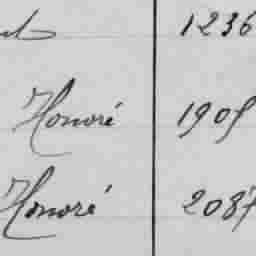 1236
Honoré 1905
Honoré 2087